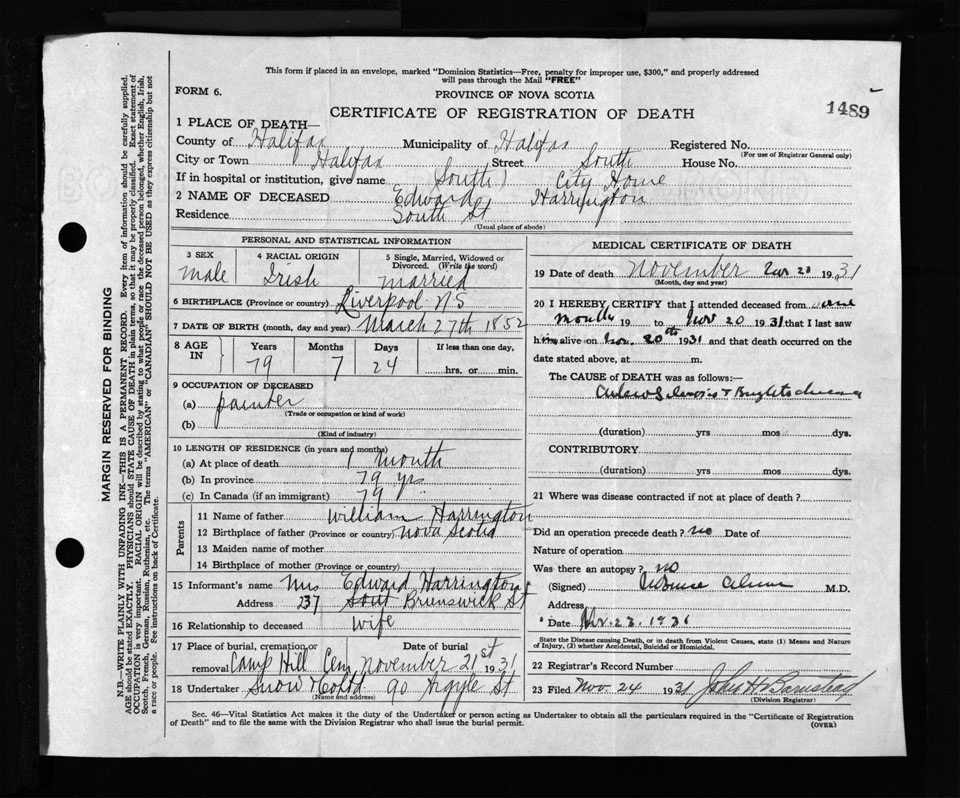 This form if placed in an envelope, marked "Dominion Statistics—Free, penalty for improper use, $300," and properly addressed
will pass through the Mail "FREE"
FORM 6.
PROVINCE OF NOVA SCOTIA
CERTIFICATE OF REGISTRATION OF DEATH
1489
1 PLACE OF DEATH—
County of Halifax Municipality of Halifax Registered No.
(For use of Registrar General only)
City or Town Halifax Street South House No.
If in hospital or institution, give name South) City Home
2 NAME OF DECEASED Edward Harrington
Residence South St
(Usual place of abode)
PERSONAL AND STATISTICAL INFORMATION
3 SEX
male
4 RACIAL ORIGIN
Irish
5 Single, Married, Widowed or
Divorced. (Write the word)
married
6 BIRTHPLACE (Province or country) Liverpool NS
7 DATE OF BIRTH (month, day and year) March 27th 1852
8 AGE IN
Years Months Days If less than one day,
79 7 24 hrs. or min.
9 OCCUPATION OF DECEASED
(a) painter
(Trade or occupation or kind of work)
(b)
(Kind of industry)
10 LENGTH OF RESIDENCE (in years and months)
(a) At place of death 1 month
(b) In province 79 yrs
(c) In Canada (if an immigrant) 79
Parents
11 Name of father William Harrington
12 Birthplace of father (Province or country) Nova Scotia
13 Maiden name of mother
14 Birthplace of mother (Province or country)
15 Informant's name Mrs Edward Harrington
Address 237 Brunswick St
16 Relationship to deceased wife
17 Place of burial, cremation or Date of burial
removal Camp Hill Cem November 21st 1931
18 Undertaker Snow & Co Ltd 90 Argyle St
(Name and address)
MEDICAL CERTIFICATE OF DEATH
19 Date of death November 20 1931
(Month, day and year)
20 I HEREBY CERTIFY that I attended deceased from one
month 19 to Nov 20 1931 that I last saw
him alive on Nov. 20th 1931 and that death occurred on the
date stated above, at m.
The CAUSE of DEATH was as follows:—
Arteriosclerosis & Brights disease
(duration) yrs mos dys.
CONTRIBUTORY
(duration) yrs mos dys.
21 Where was disease contracted if not at place of death?
Did an operation precede death? no Date of
Nature of operation
Was there an autopsy? no
(Signed) M.D.
Address
Date Nov. 23. 1931
State the Disease causing Death, or in death from Violent Causes, state (1) Means and Nature
of Injury, (2) whether Accidental, Suicidal or Homicidal.
22 Registrar's Record Number
23 Filed Nov. 24 1931 John H Barnstead
(Division Registrar)
Sec. 46—Vital Statistics Act makes it the duty of the Undertaker or person acting as Undertaker to obtain all the particulars required in the "Certificate of Registration
of Death" and to file the same with the Division Registrar who shall issue the burial permit. (OVER)
MARGIN RESERVED FOR BINDING
N.B.—WRITE PLAINLY WITH UNFADING INK—THIS IS A PERMANENT RECORD. Every item of information should be carefully supplied.
AGE should be stated EXACTLY. PHYSICIANS should STATE CAUSE OF DEATH in plain terms, so that it may be properly classified. Exact statement of
OCCUPATION is very important. RACIAL ORIGIN will be described by stating to what people or race the deceased person belonged, whether English, Irish,
Scotch, French, German, Russian, Ruthenian, etc. The terms "AMERICAN" or "CANADIAN" SHOULD NOT BE USED as they express citizenship but not
a race or people. See instructions on back of Certificate.